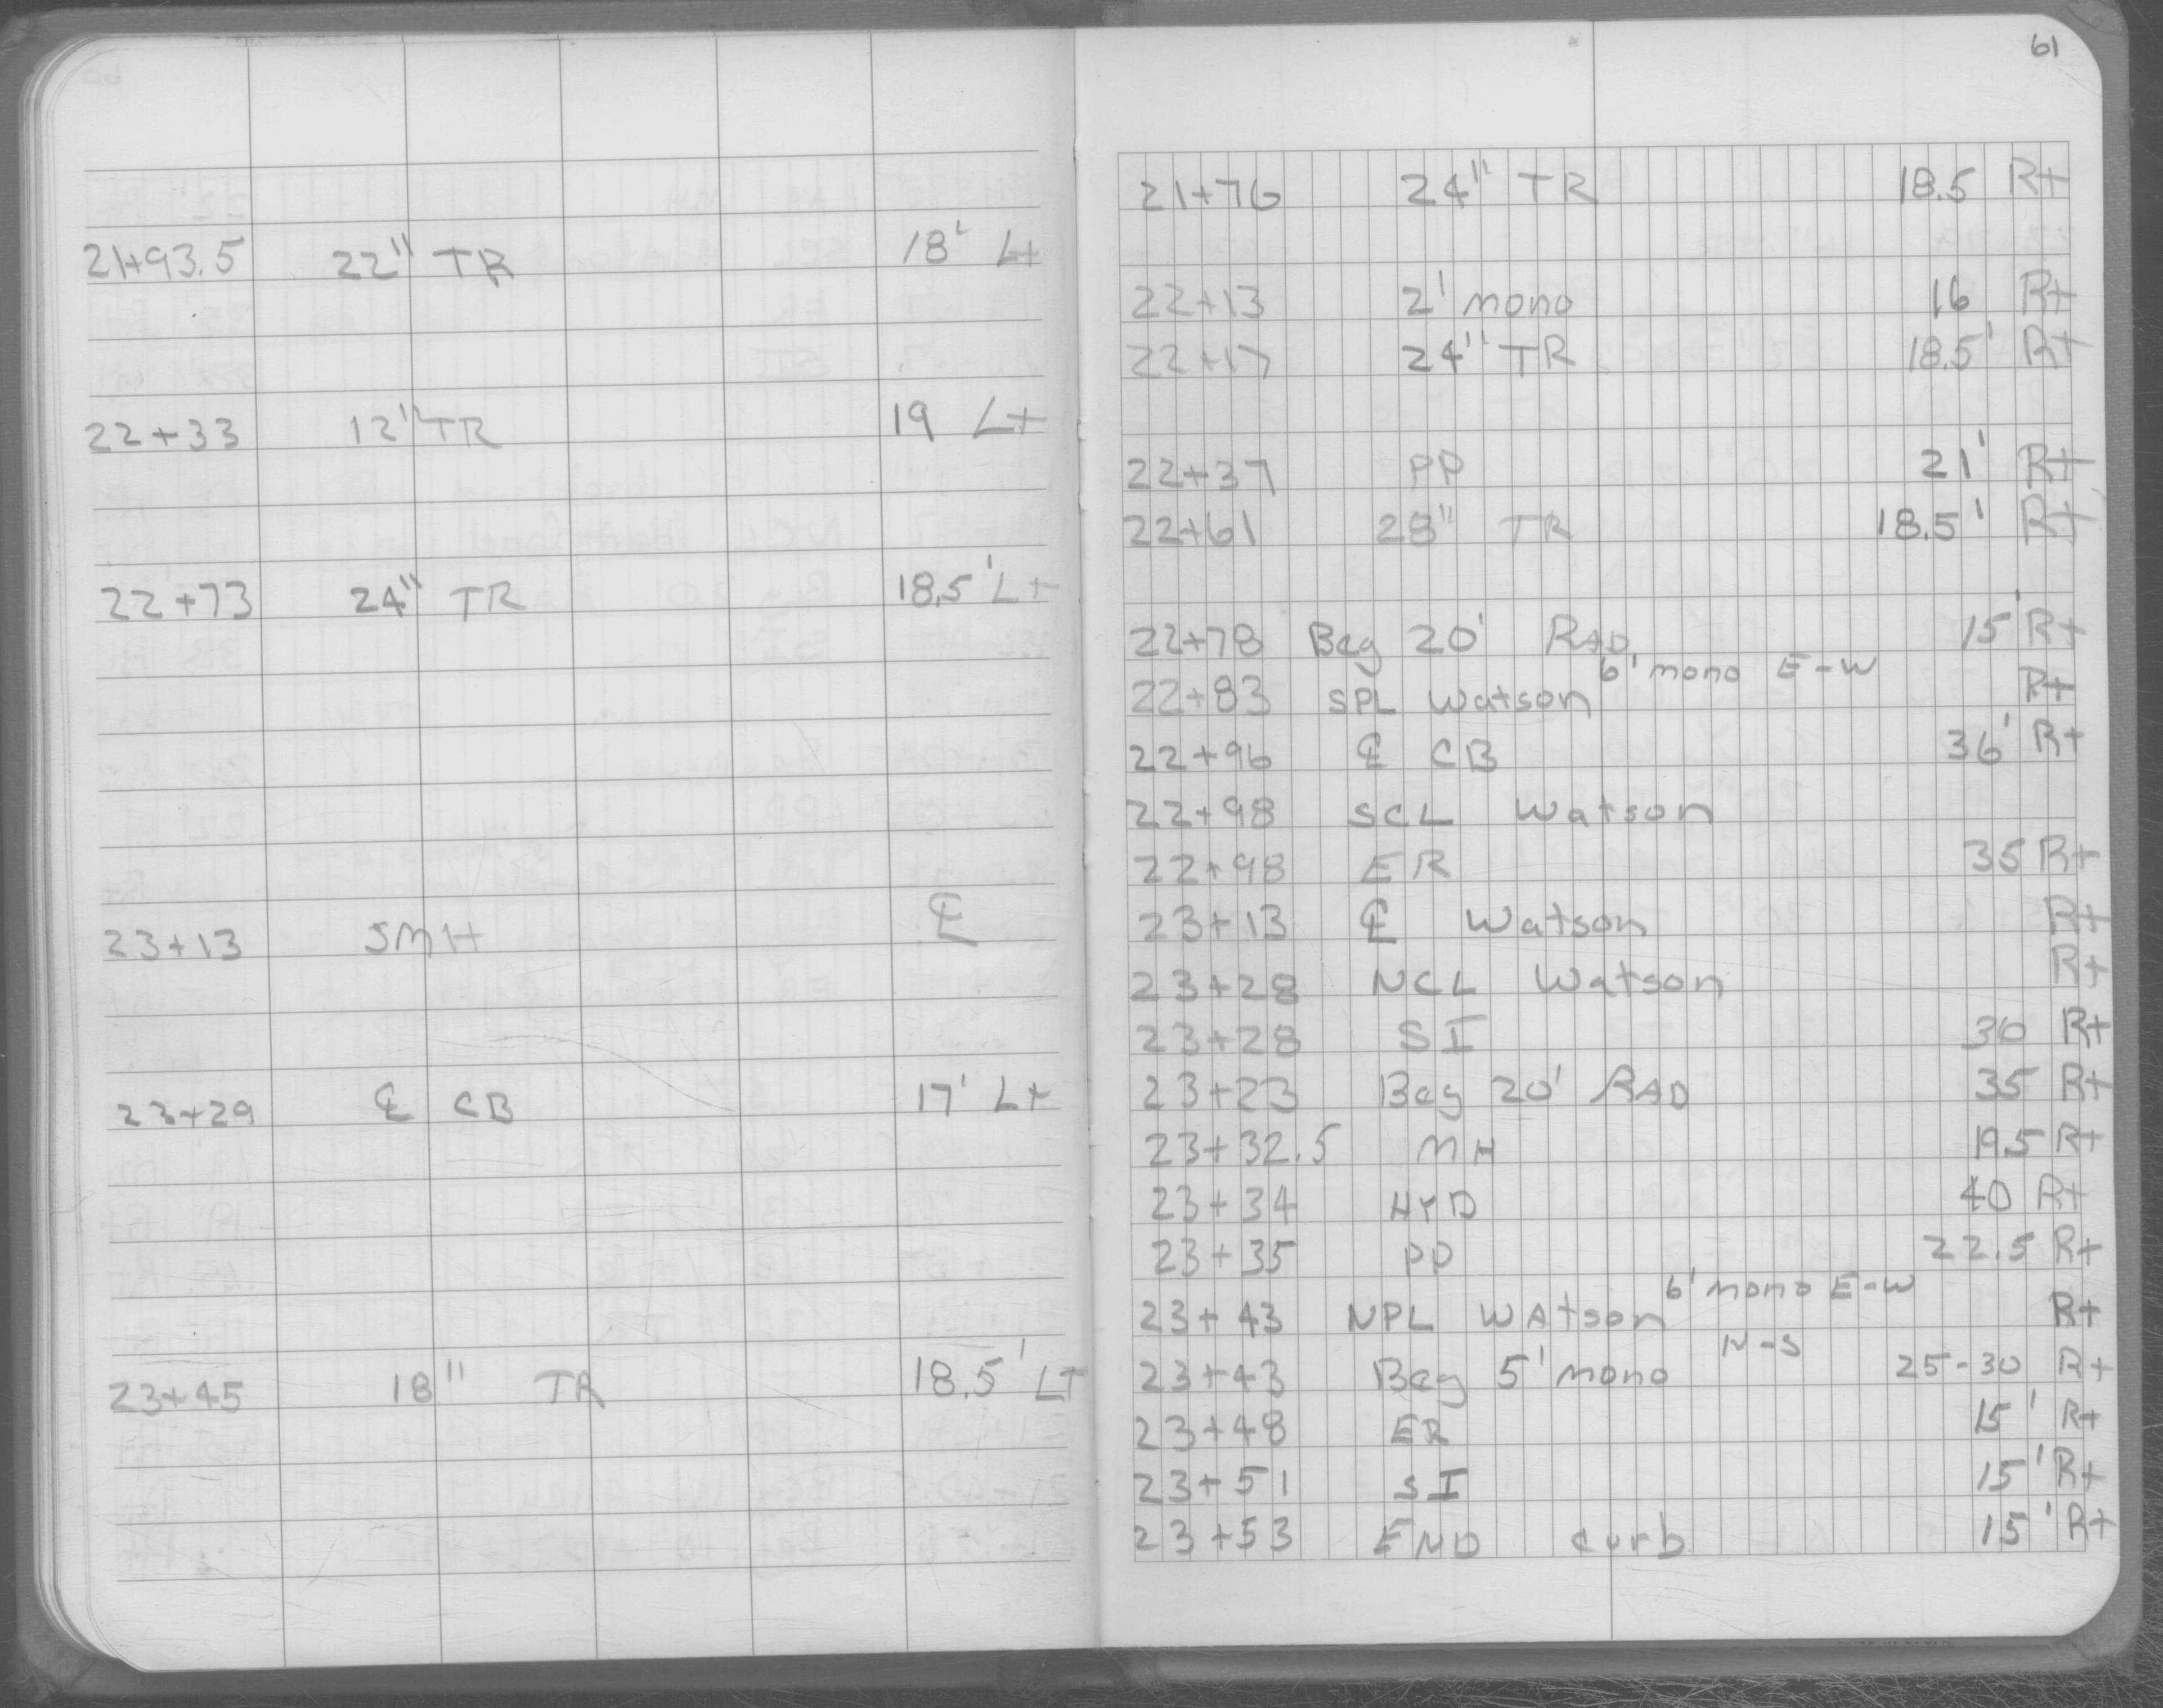 21+93.5 22" TR 18' Lt
22+33 12" TR 19 Lt
22+73 24" TR 18.5' Lt
23+13 SMH ℄
23+29 ℄ CB 17' Lt
23+45 18" TR 18.5' LT
61
21+76 24" TR 18.5 Rt
22+13 2' mono 16 Rt
22+17 24" TR 18.5' Rt
22+37 PP 21' Rt
22+61 28" TR 18.5' Rt
22+78 Beg 20' RAD 15' Rt
22+83 SPL Watson 6' mono E-W Rt
22+96 ℄ CB 36' Rt
22+98 SCL Watson
22+98 ER 35 Rt
23+13 ℄ Watson Rt
23+28 NCL Watson Rt
23+28 SI 30 Rt
23+23 Beg 20' RAD 35 Rt
23+32.5 MH 19.5 Rt
23+34 HYD 40 Rt
23+35 PP 22.5 Rt
23+43 NPL WAtson 6' mono E-W Rt
23+43 Beg 5' mono N-S 25-30 Rt
23+48 ER 15' Rt
23+51 SI 15' Rt
23+53 END curb 15' Rt